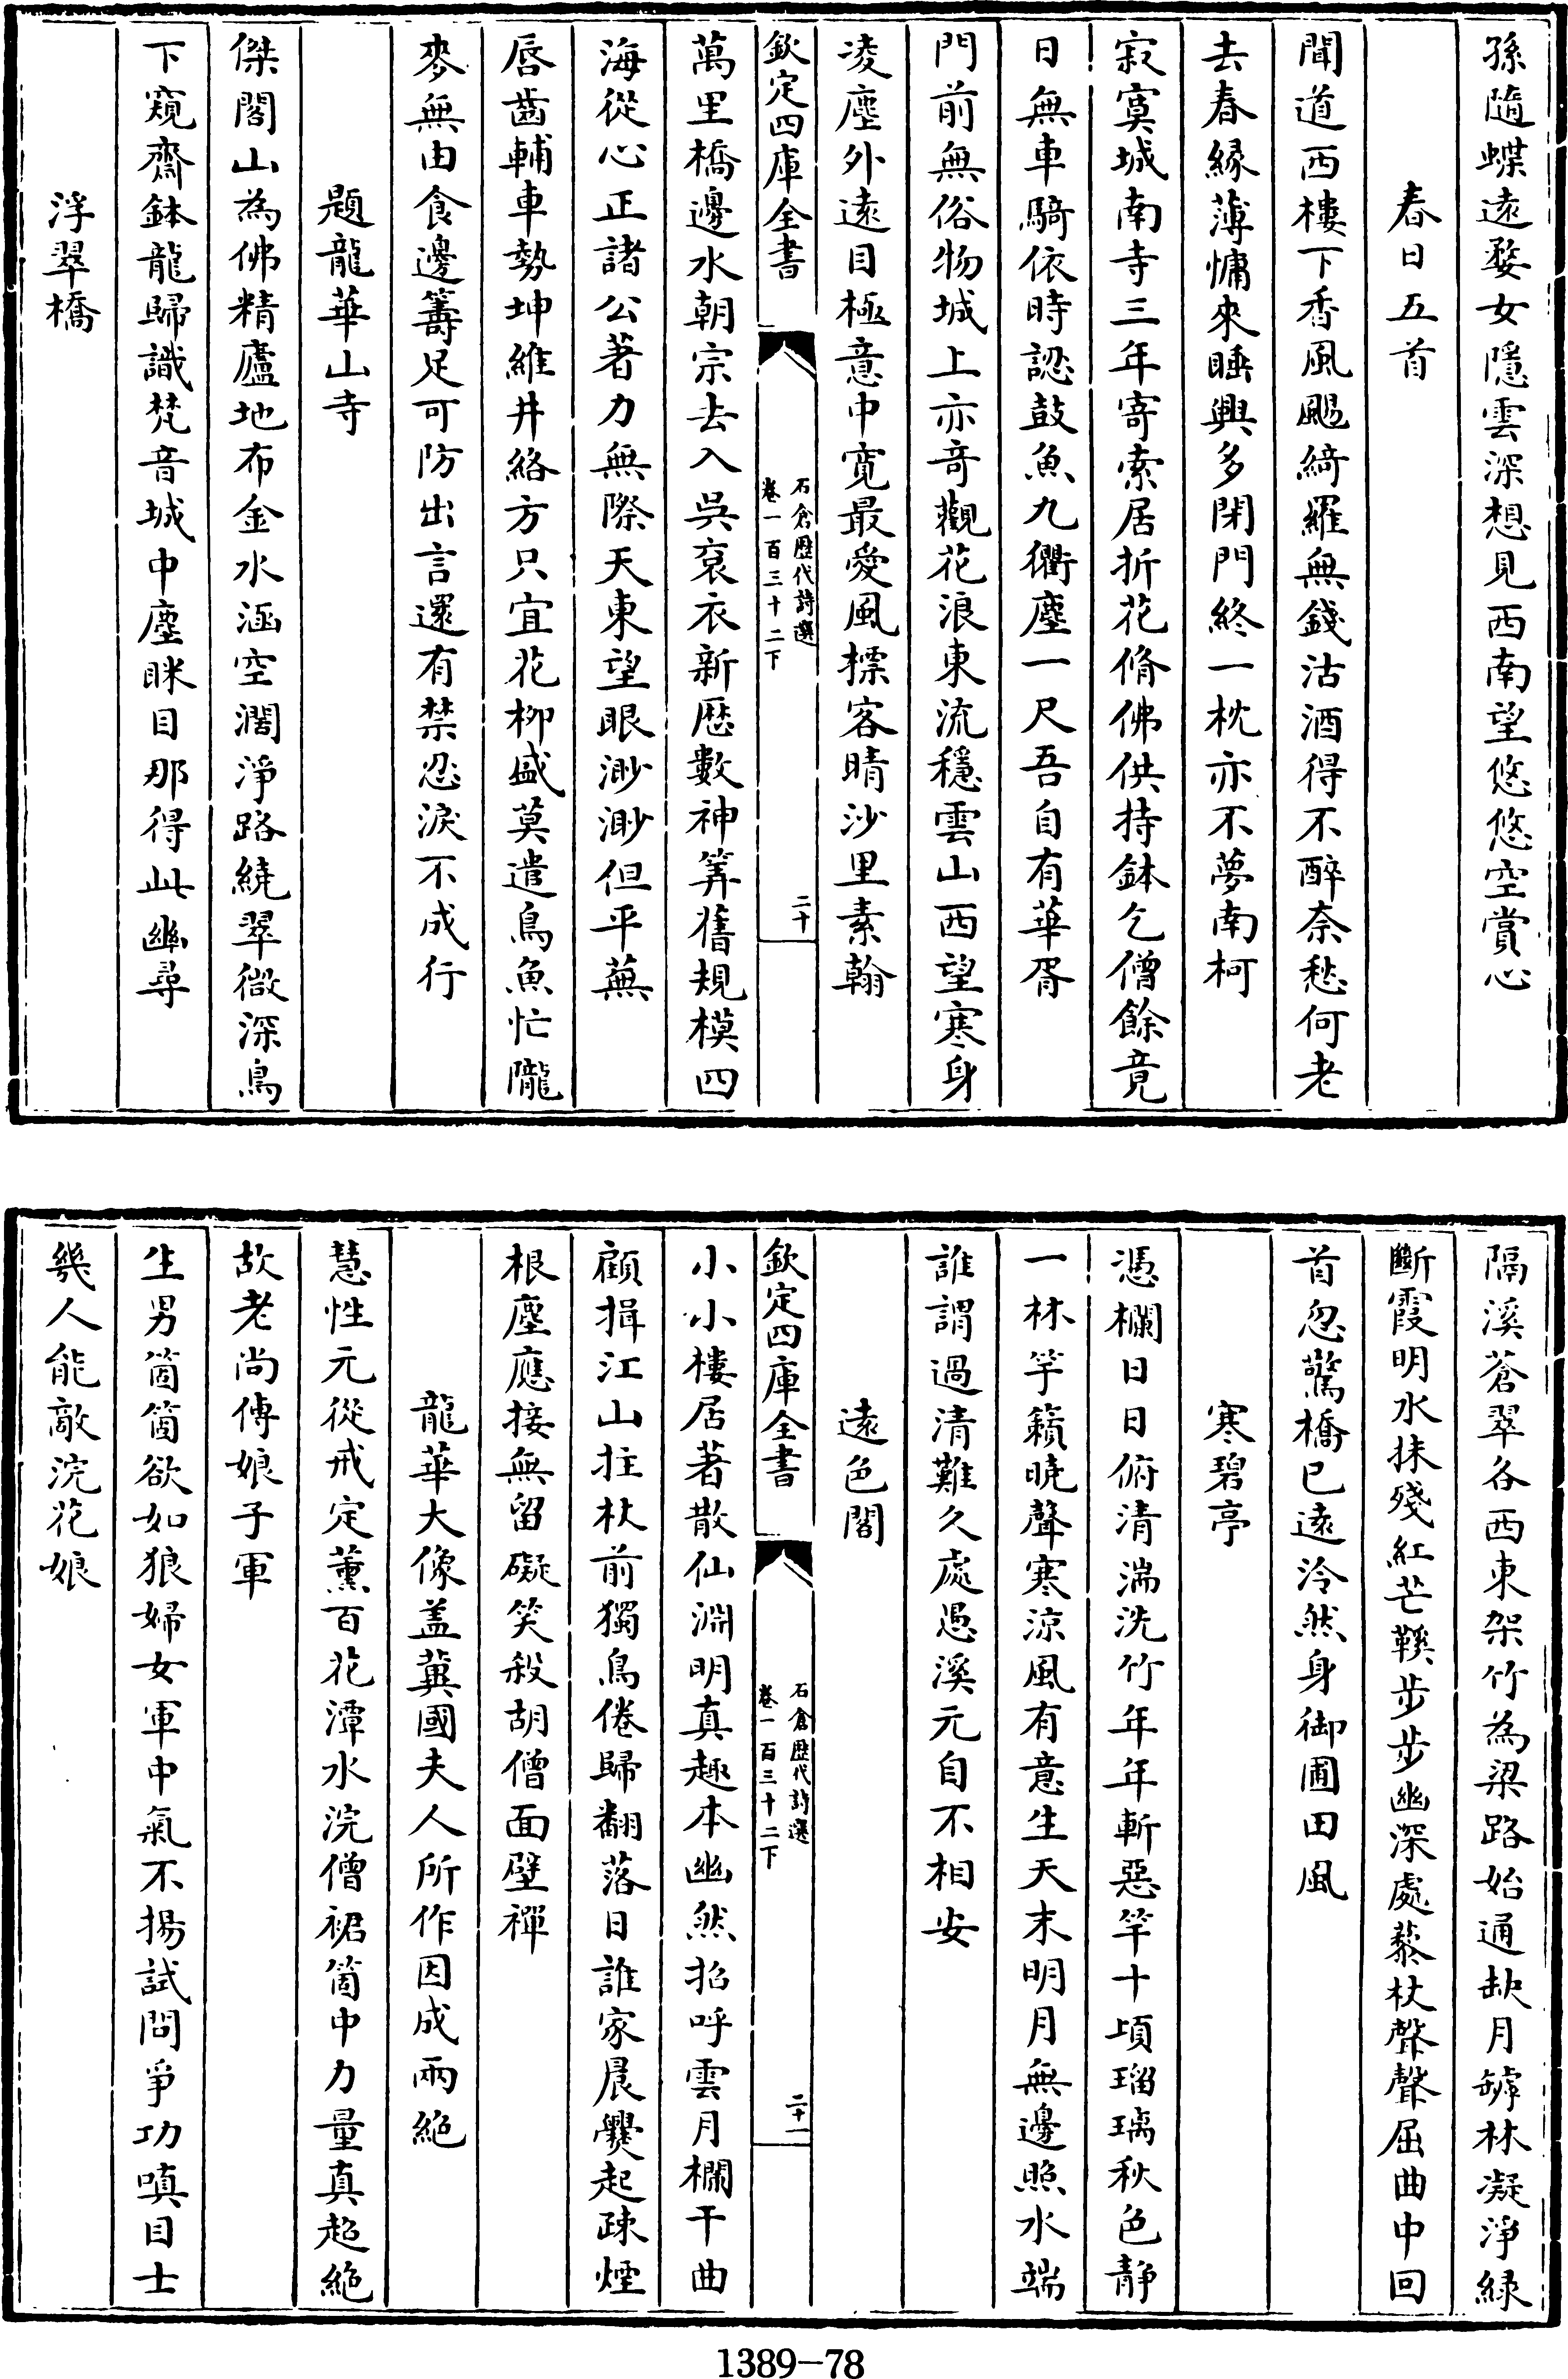 孫隨蝶遠婺女隱雲深想見西南望悠悠空賞心
春日五首
聞道西樓下香風颺綺羅無錢沽酒得不醉奈愁何老
去春縁薄慵來睡興多閉門終一枕亦不夢南柯
寂寞城南寺三年寄索居折花脩佛供持鉢乞僧餘竟
日無車騎依時認鼓魚九衢塵一尺吾自有華胥
門前無俗物城上亦竒觀花浪東流穩雲山西望寒身
凌塵外遠目極意中寛最愛風摽客晴沙里素翰
欽定四庫全書
石倉歴代詩選
卷一百三十二下
二十
萬里橋邊水朝宗去入呉衮衣新歴數神筭舊規模四
海從心正諸公著力無際天東望眼渺渺但平蕪
唇齒輔車勢坤維井絡方只宜花柳盛莫遣鳥魚忙隴
麥無由食邊籌足可防出言還有禁忍淚不成行
題龍華山寺
傑閣山為佛精廬地布金水涵空濶淨路繞翠微深鳥
下窺齋鉢龍歸識梵音城中塵眯目那得此幽尋
浮翠橋
隔溪蒼翠各西東架竹為梁路始通缺月罅林凝淨緑
斷霞明水抹殘紅芒鞵步步幽深處藜杖聲聲屈曲中回
首忽驚橋已逺泠然身御圃田風
寒碧亭
憑欄日日俯清湍洗竹年年斬惡竿十頃瑠璃秋色靜
一林竽籟曉聲寒涼風有意生天末明月無邊照水端
誰謂過清難久處愚溪元自不相安
遠色閣
欽定四庫全書
石倉歴代詩選
卷一百三十二下
二十一
小小樓居著散仙淵明真趣本幽然招呼雲月欄干曲
顧揖江山拄杖前獨鳥倦歸翻落日誰家晨爨起疎煙
根塵應接無留礙笑殺胡僧面壁禪
龍華大像盖冀國夫人所作因成兩絶
慧性元從戒定薰百花潭水浣僧裙箇中力量真超絶
故老尚傳娘子軍
生男箇箇欲如狼婦女軍中氣不揚試問爭功嗔目士
幾人能敵浣花娘
1389-78